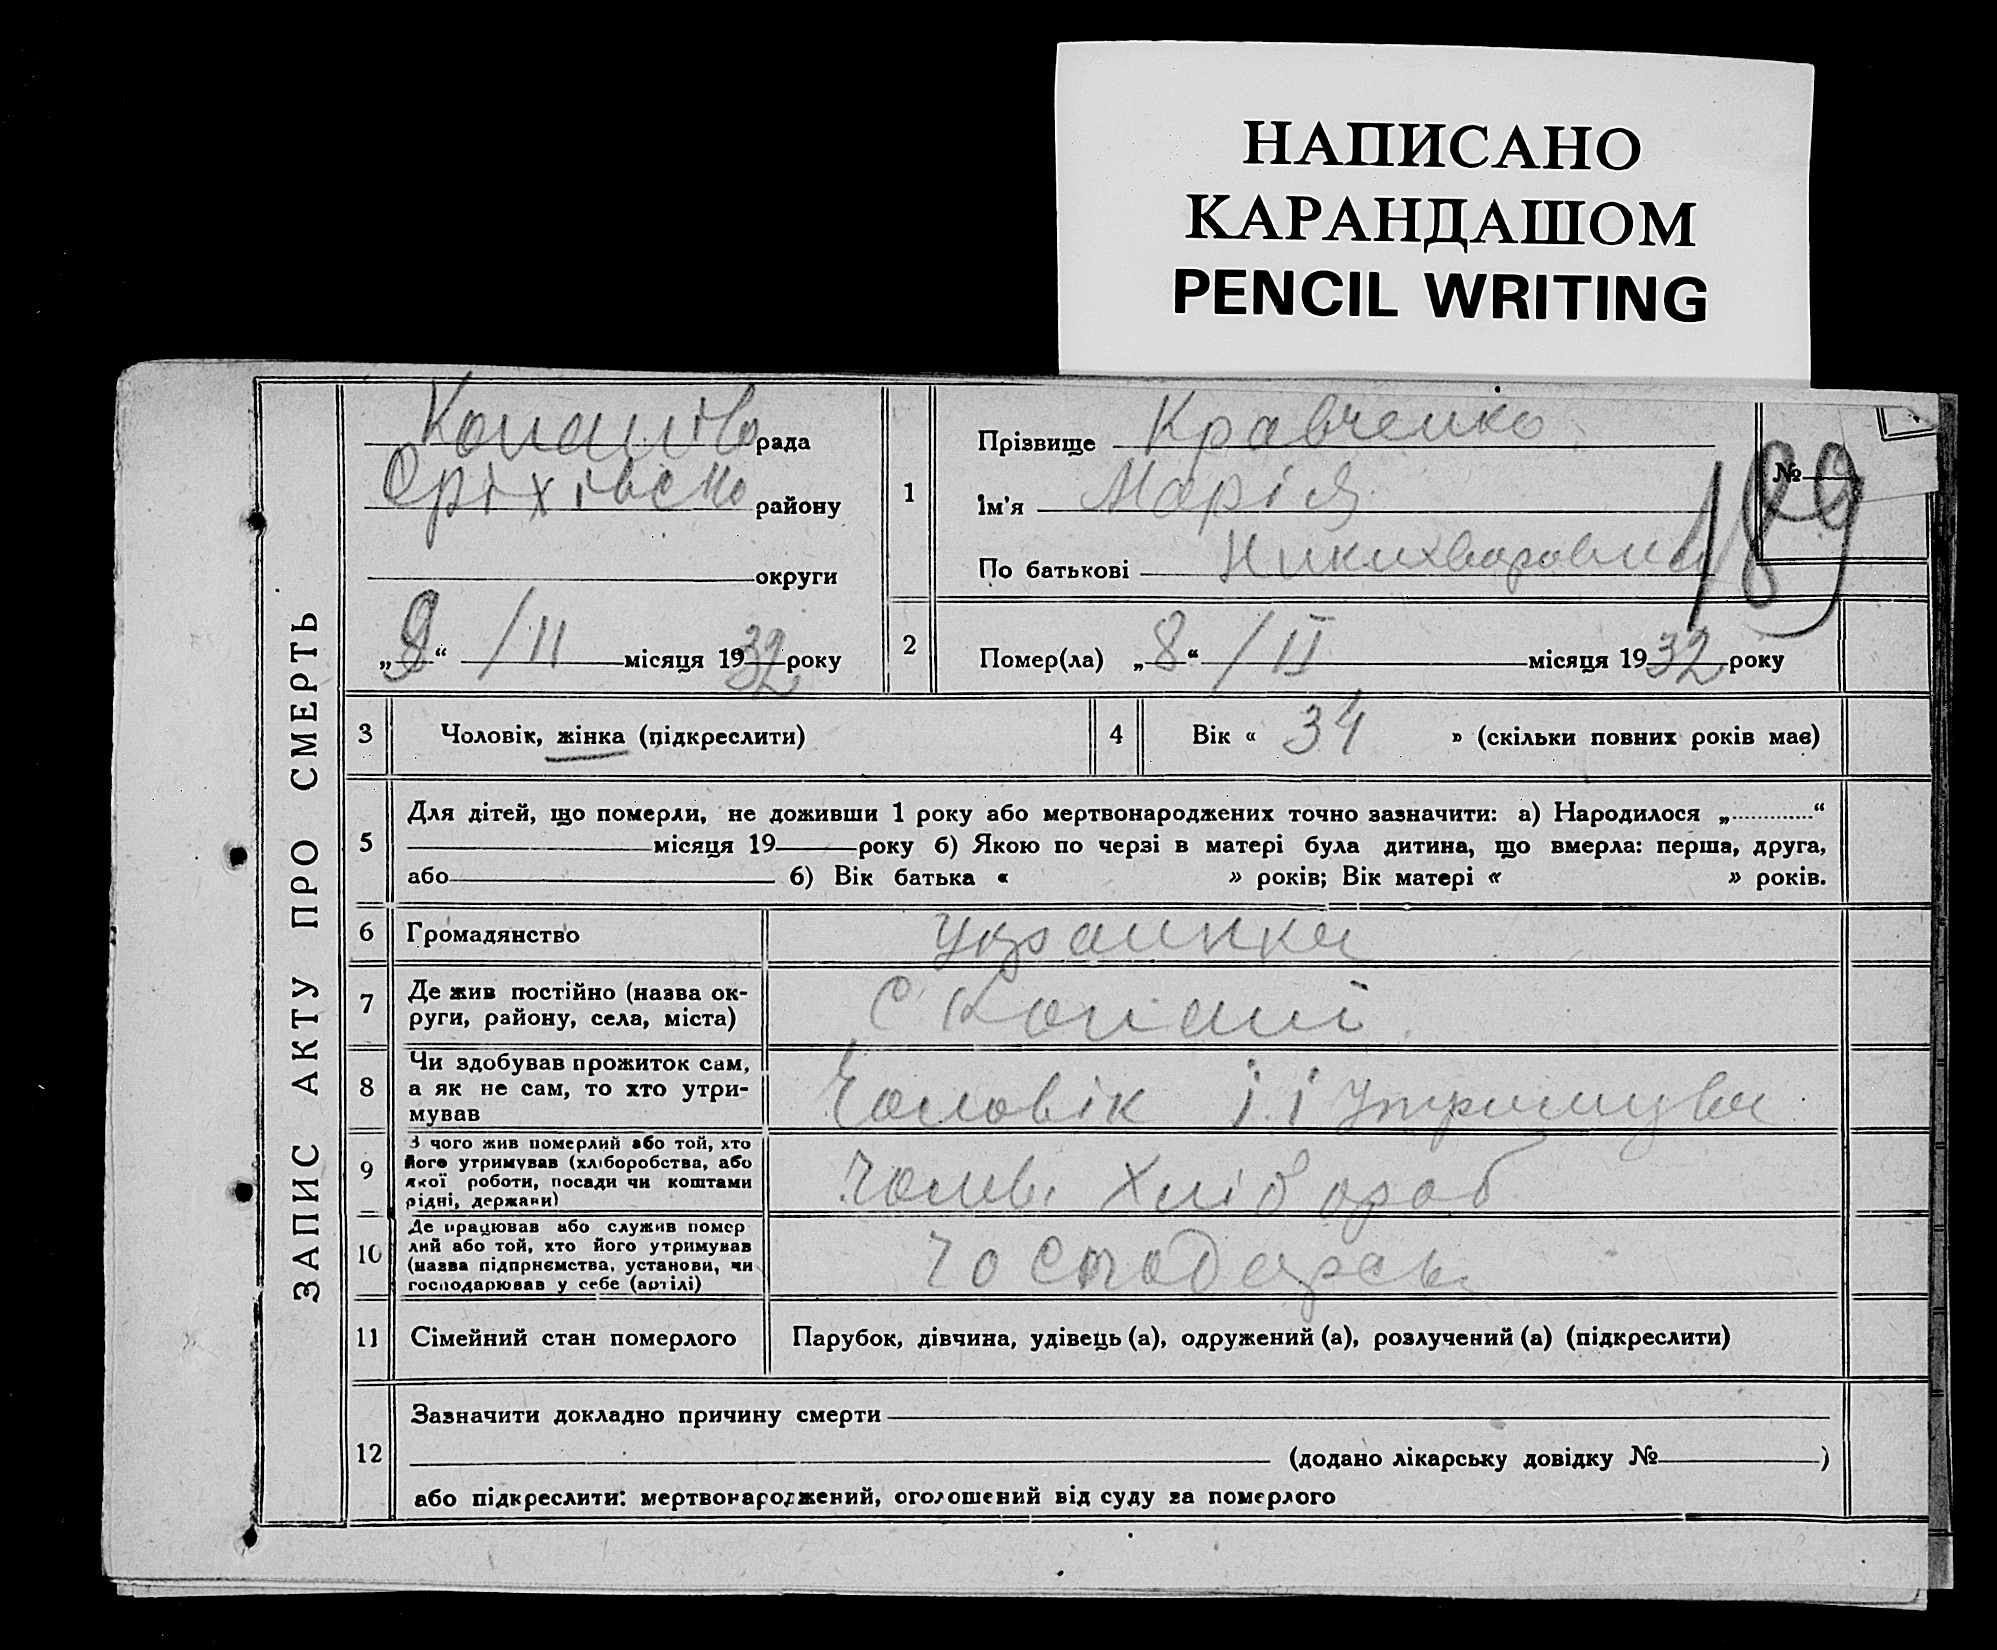 НАПИСАНО
КАРАНДАШОМ
PENCIL WRITING
ЗАПИС АКТУ ПРО СМЕРТЬ
Копанів рада
Оріхівсько району
округи
„8“ /II місяця 1932 року
1
Прізвище Кравченко
Ім'я Марія
По батькові
№ 189
2
Помер(ла) „8“ /II місяця 1932 року
3 Чоловік, жінка (підкреслити)
4 Вік « 34 » (скільки повних років має)
5
Для дітей, що померли, не доживши 1 року або мертвонароджених точно зазначити: а) Народилося „............“
місяця 19 року б) Якою по черзі в матері була дитина, що вмерла: перша, друга,
або б) Вік батька « » років; Вік матері « » років.
6 Громадянство украинка
7 Де жив постійно (назва ок-
руги, району, села, міста)
с Копані
8 Чи здобував прожиток сам,
а як не сам, то хто утри-
мував
Чоловік її утримува
9 З чого жив померлий або той, хто
його утримував (хліборобства, або
якої роботи, посади чи коштами
рідні, держави)
Хлібороб
10 Де працював або служив помер
лий або той, хто його утримував
(назва підпрнємства, установи, чи
господарював у себе (артілі)
11 Сімейний стан померлого
Парубок, дівчина, удівець (а), одружений (а), розлучений (а) (підкреслити)
12
Зазначити докладно причину смерти
(додано лікарську довідку № )
або підкреслити: мертвонароджений, оголошений від суду за померлого